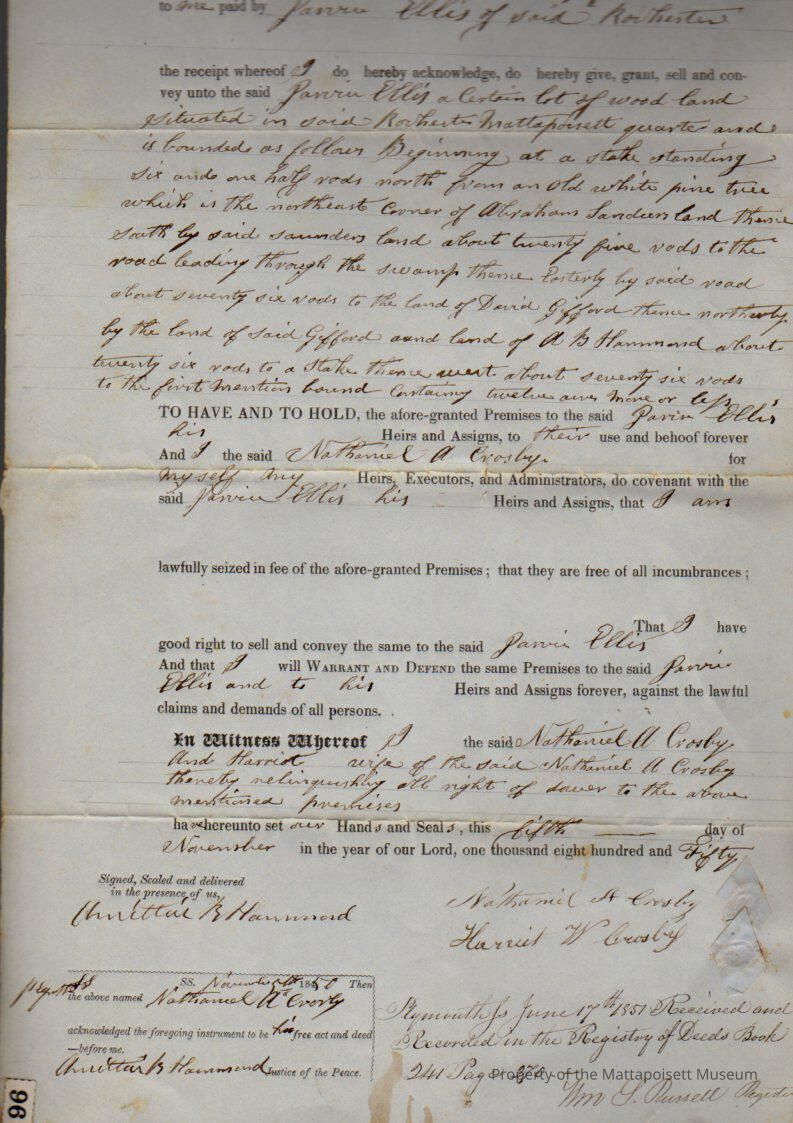 to me paid by Jarvis Ellis of said Rochester
the receipt whereof I do hereby acknowledge, do hereby give, grant, sell and con-
vey unto the said Jarvis Ellis a Certain lot of wood land
situated in said Rochester Mattapoisett quarter and
is bounded as follows Beginning at a stake standing
six and one half rods north from an old white pine tree
which is the northeast Corner of Abraham Sanders land thence
South by said saunders land about twenty five rods to the
road leading through the swamp thence Easterly by said road
about seventy six rods to the land of David Gifford thence northerly
by the land of said Gifford and land of A B Hammond about
twenty six rods to a Stake thence west about seventy six rods
to the first mention bound Containing twelve acres more or less
TO HAVE AND TO HOLD, the afore-granted Premises to the said Jarvis Ellis
his Heirs and Assigns, to their use and behoof forever
And I the said Nathaniel A Crosby for
myself my Heirs, Executors, and Administrators, do covenant with the
said Jarvis Ellis his Heirs and Assigns, that I am
lawfully seized in fee of the afore-granted Premises; that they are free of all incumbrances;
That I have
good right to sell and convey the same to the said Jarvis Ellis
And that I will WARRANT AND DEFEND the same Premises to the said Jarvis
Ellis and to his Heirs and Assigns forever, against the lawful
claims and demands of all persons.
In Witness Whereof I the said Nathaniel A Crosby
And Harriot wife of the said Nathaniel A Crosby
thereby relinquishing all right of dower to the above
mentioned premises
have hereunto set our Hands and Seals, this fifth day of
November in the year of our Lord, one thousand eight hundred and Fifty
Signed, Sealed and delivered
in the presence of us,
B Hammond
Nathaniel A Crosby
Harriet W Crosby
SS. November 1850 Then
the above named Nathaniel A Crosby
acknowledged the foregoing instrument to be his free act and deed
—before me.
B Hammond Justice of the Peace.
Plymouth Ss June 17th 1851 Received and
Recorded in the Registry of Deeds Book
241 Page
Wm S. Russell Register
Property of the Mattapoisett Museum
96